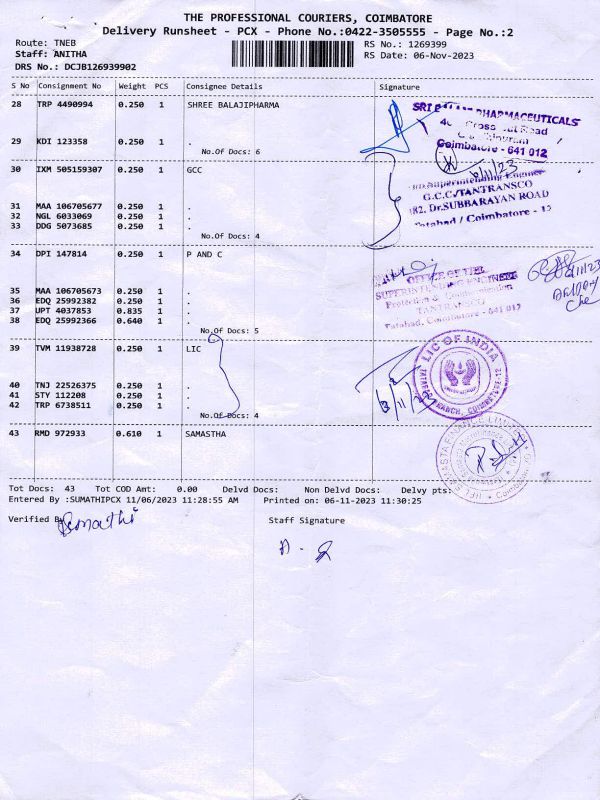 THE PROFESSIONAL COURIERS, COIMBATORE
Delivery Runsheet - PCX - Phone No.:0422-3505555 - Page No.:2
Route: TNEB
RS No.: 1269399
Staff: ANITHA
RS Date: 06-Nov-2023
DRS No.: DCJB126939902
S No Consignment No Weight PCS Consignee Details Signature
28 TRP 4490994 0.250 1 SHREE BALAJIPHARMA
PHARMACEUTICALS
Road
29 KDI 123358 0.250 1 .
Coimbatore - 641 012
No.Of Docs: 6
30 IXM 505159307 0.250 1 GCC
Superintending Engineer
G.C.C/TANTRANSCO
182, Dr.SUBBARAYAN ROAD
31 MAA 106705677 0.250 1 .
32 NGL 6033069 0.250 1 .
Tatabad / Coimbatore - 12
33 DDG 5073685 0.250 1 .
No.Of Docs: 4
34 DPI 147814 0.250 1 P AND C
OFFICE OF THE
SUPERINTENDING ENGINEER
35 MAA 106705673 0.250 1 .
Protection & Communication
36 EDQ 25992382 0.250 1 .
TANTRANSCO
37 UPT 4037853 0.835 1 .
Tatabad, Coimbatore - 641 012
38 EDQ 25992366 0.640 1 .
No.Of Docs: 5
39 TVM 11938728 0.250 1 LIC
LIC OF INDIA
40 TNJ 22526375 0.250 1 .
41 STY 112208 0.250 1 .
42 TRP 6738511 0.250 1 .
BRANCH, COIMBATORE-12
No.Of Docs: 4
43 RMD 972933 0.610 1 SAMASTHA
FINANCE LIMITED
Tot Docs: 43 Tot COD Amt: 0.00 Delvd Docs: Non Delvd Docs: Delvy pts:
Entered By :SUMATHIPCX 11/06/2023 11:28:55 AM Printed on: 06-11-2023 11:30:25
Verified By
Staff Signature
Sumathi